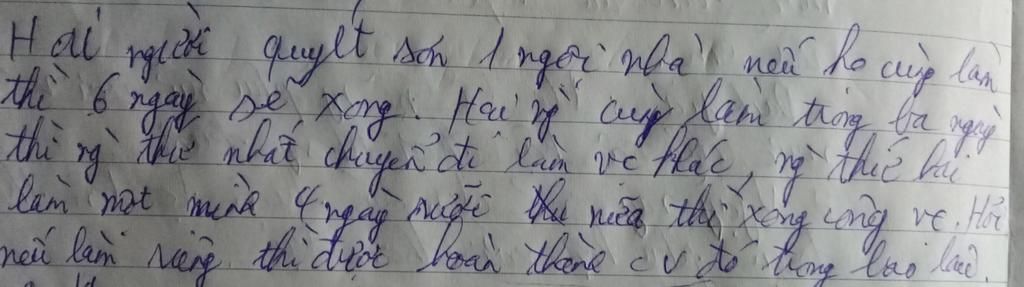 Hai người quyét sơn 1 ngôi nhà nếu họ cùng làm
thì 6 ngày sẽ xong. Hai ng` cùng làm trong ba ngày
thì ng` thứ nhất chuyển đi làm vc khác, ng` thứ hai
làm một mình 4 ngày rưỡi nữa thì xong công vc. Hỏi
nếu làm riêng thì được hoàn thành cv đó trong bao lâu.